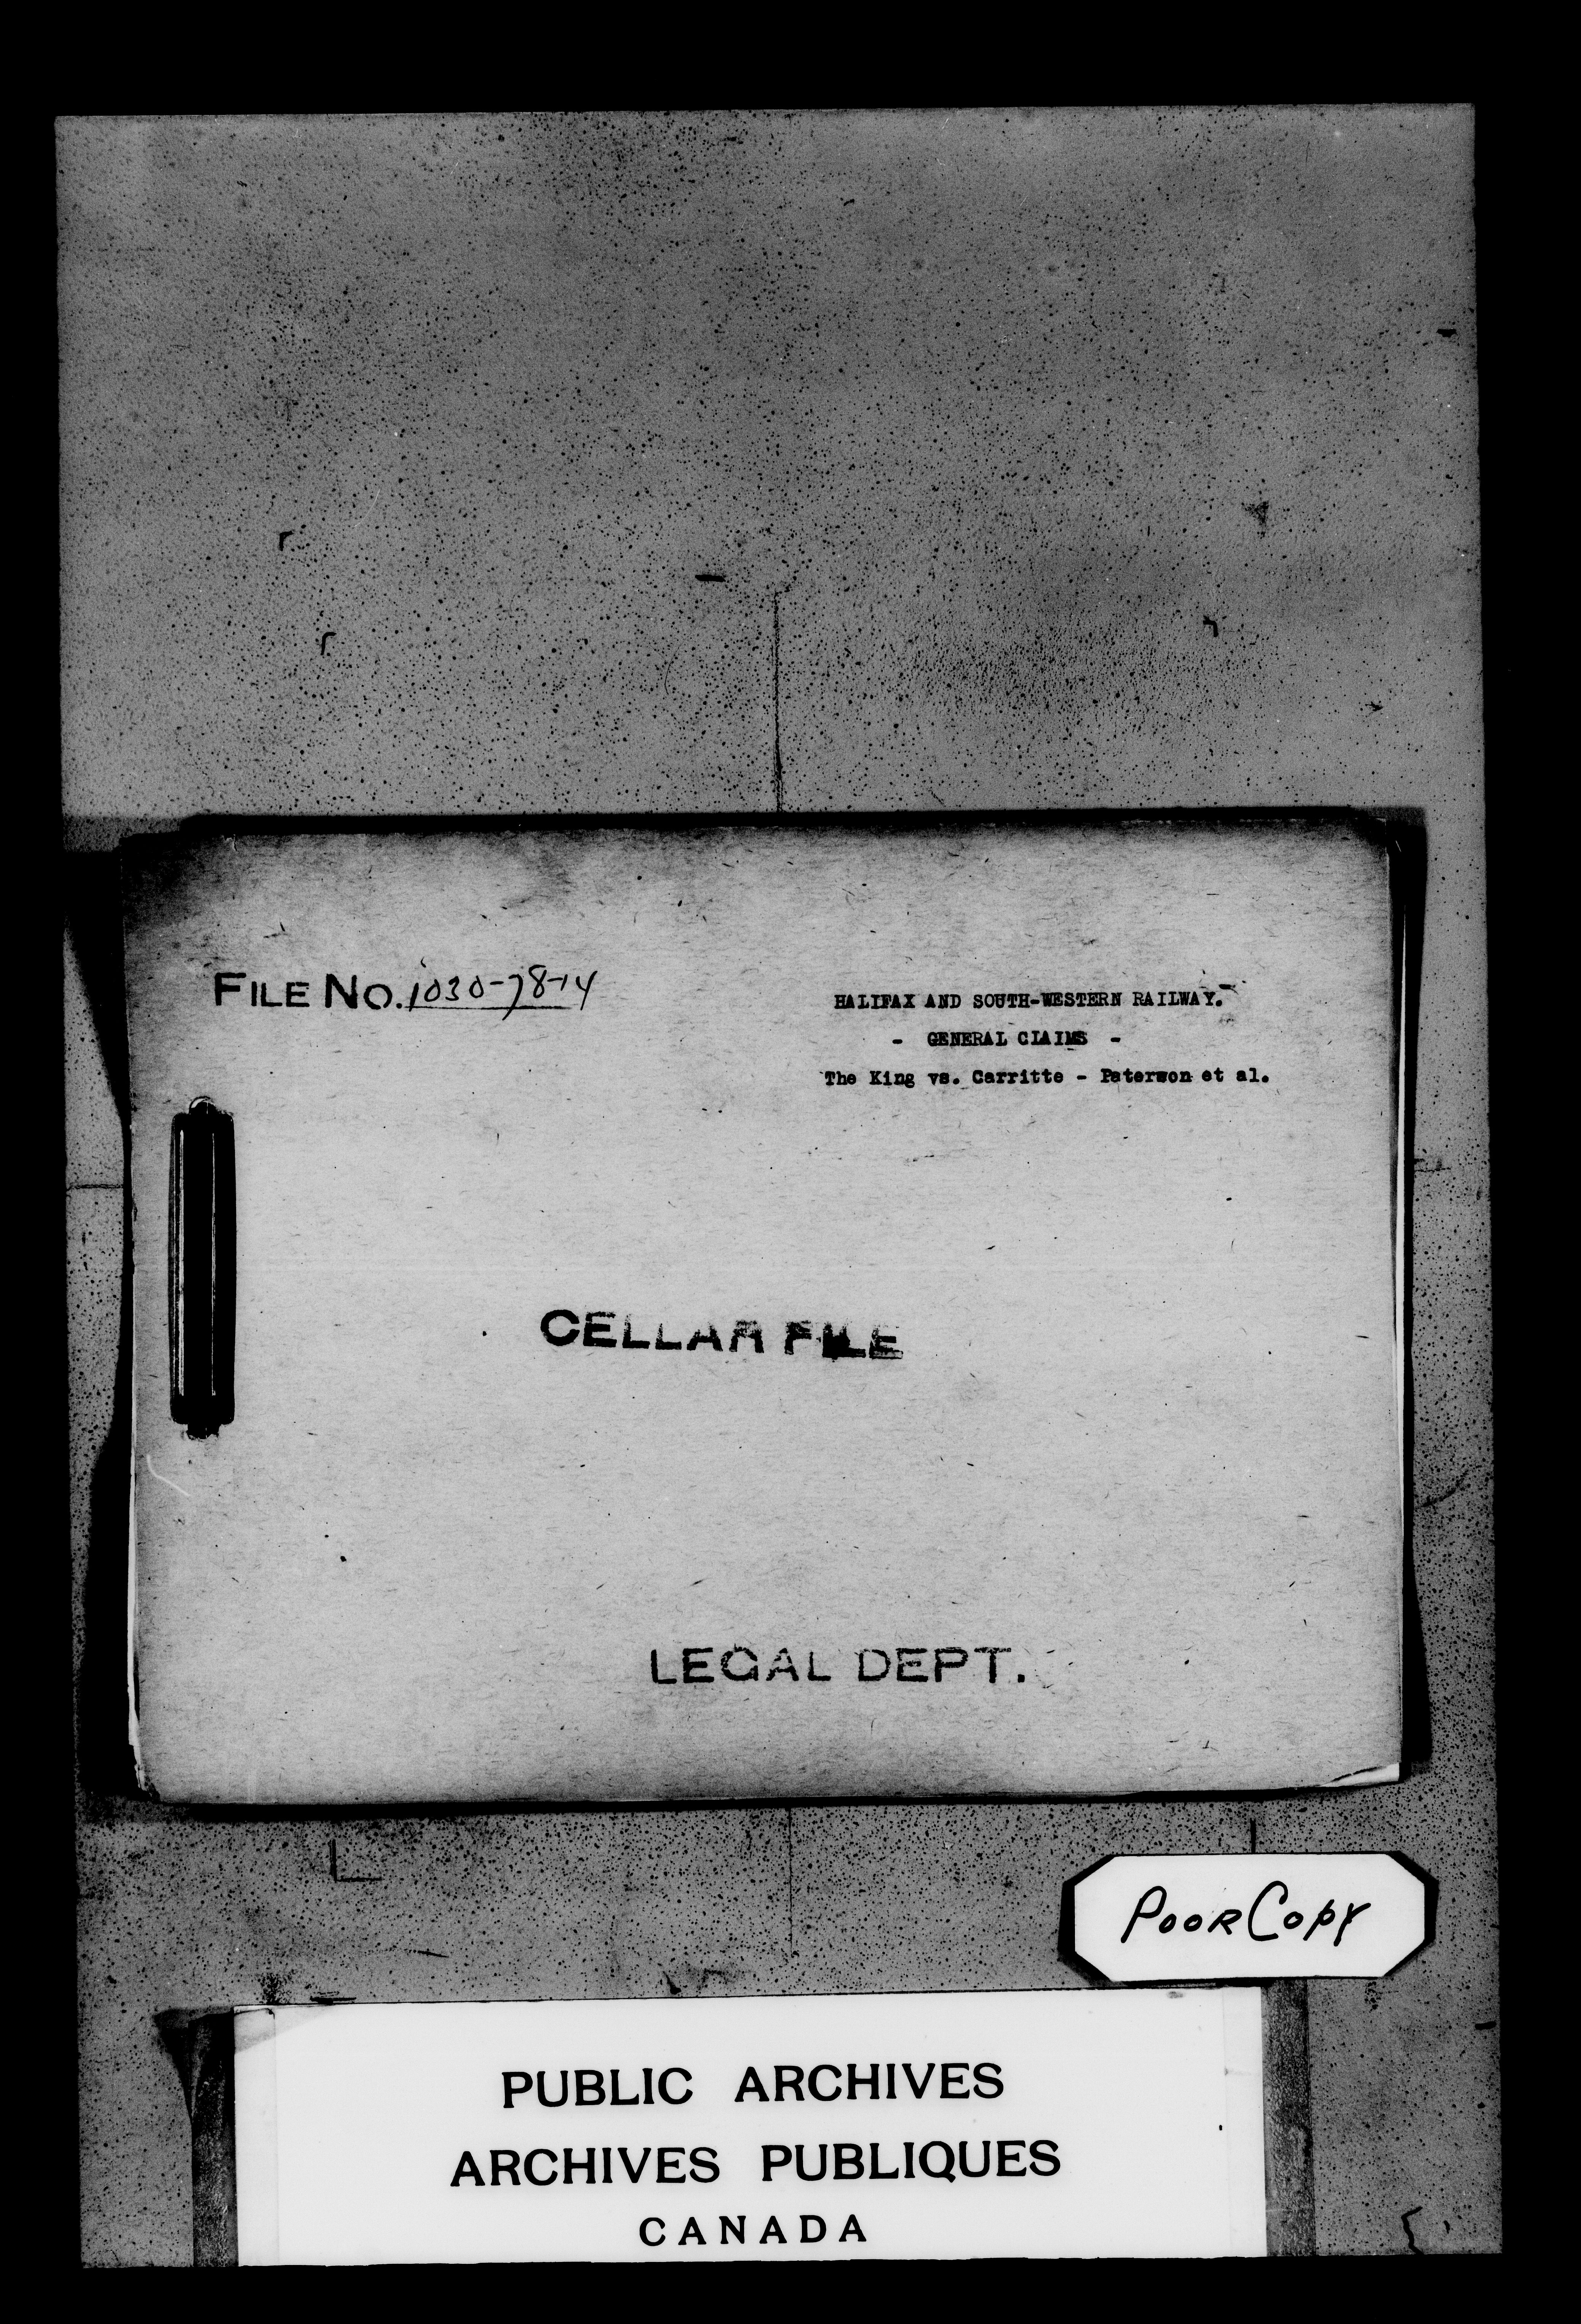 FILE NO. 1030-78-14
HALIFAX AND SOUTH-WESTERN RAILWAY.
- GENERAL CLAIMS -
The King vs. Carritte - Paterson et al.
CELLAR FILE
LEGAL DEPT.
POOR COPY
PUBLIC ARCHIVES
ARCHIVES PUBLIQUES
CANADA